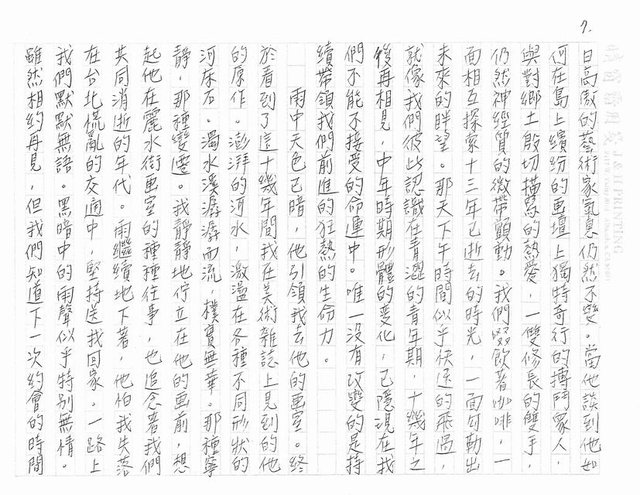 7.
日高傲的藝術家氣息仍然不變。當他談到他如
何在島上繽紛的畫壇上獨特奇行的搏鬥家人，
與對鄉土殷切描寫的熱愛，一雙修長的雙手，
仍然神經質的微帶顫動。我們啜飲著咖啡，一
面相互探索十三年已逝去的時光，一面勾勒出
未來的眺望。那天下午時間似乎快速的飛過，
就像我們彼此認識在青澀的青年期，十幾年之
後再相見，中年時期形體的变化，已隱現在我
們不能不接受的命運中。唯一沒有改變的是持
續帶領我們前進的狂熱的生命力。
雨中天色已暗，他引領我去他的画室。終
於看到了這十幾年間我在美術雜誌上見到的他
的原作。澎湃的河水，激盪在各種不同形狀的
河床石。濁水溪潺潺而流，樸實無華。那種寧
靜，那種變遷。我靜靜地佇立在他的画前，想
起他在麗水街画室的種種往事，也追念著我們
共同消逝的年代。雨繼續地下著，他怕我失落
在台北混亂的交通中，堅持送我回家。一路上
我們默默無語。黑暗中的雨聲似乎特別無情。
雖然相約再見，但我們知道下一次約會的時間